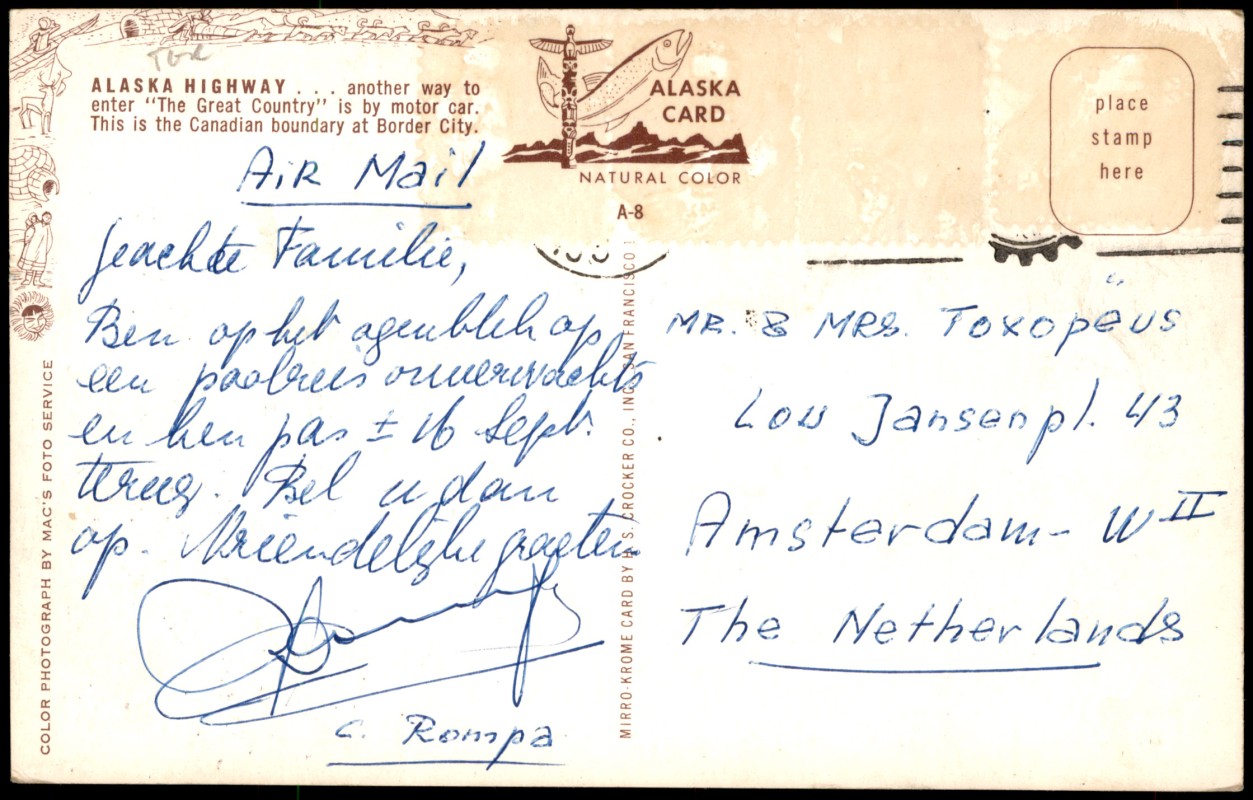 ALASKA HIGHWAY . . . another way to
enter "The Great Country" is by motor car.
This is the Canadian boundary at Border City.
ALASKA
CARD
NATURAL COLOR
A-8
place
stamp
here
Air Mail
Geachte Familie,
Ben op het ogenblik op
een poolreis onverwachts
en ben pas ± 16 Sept.
terug. Bel u dan
op. Vriendelijke groeten
C. Rompa
MR. & MRS. Toxopeüs
Lou Jansenpl. 43
Amsterdam - W II
The Netherlands
COLOR PHOTOGRAPH BY MAC'S FOTO SERVICE
MIRRO-KROME CARD BY H.S. CROCKER CO., INC. SAN FRANCISCO